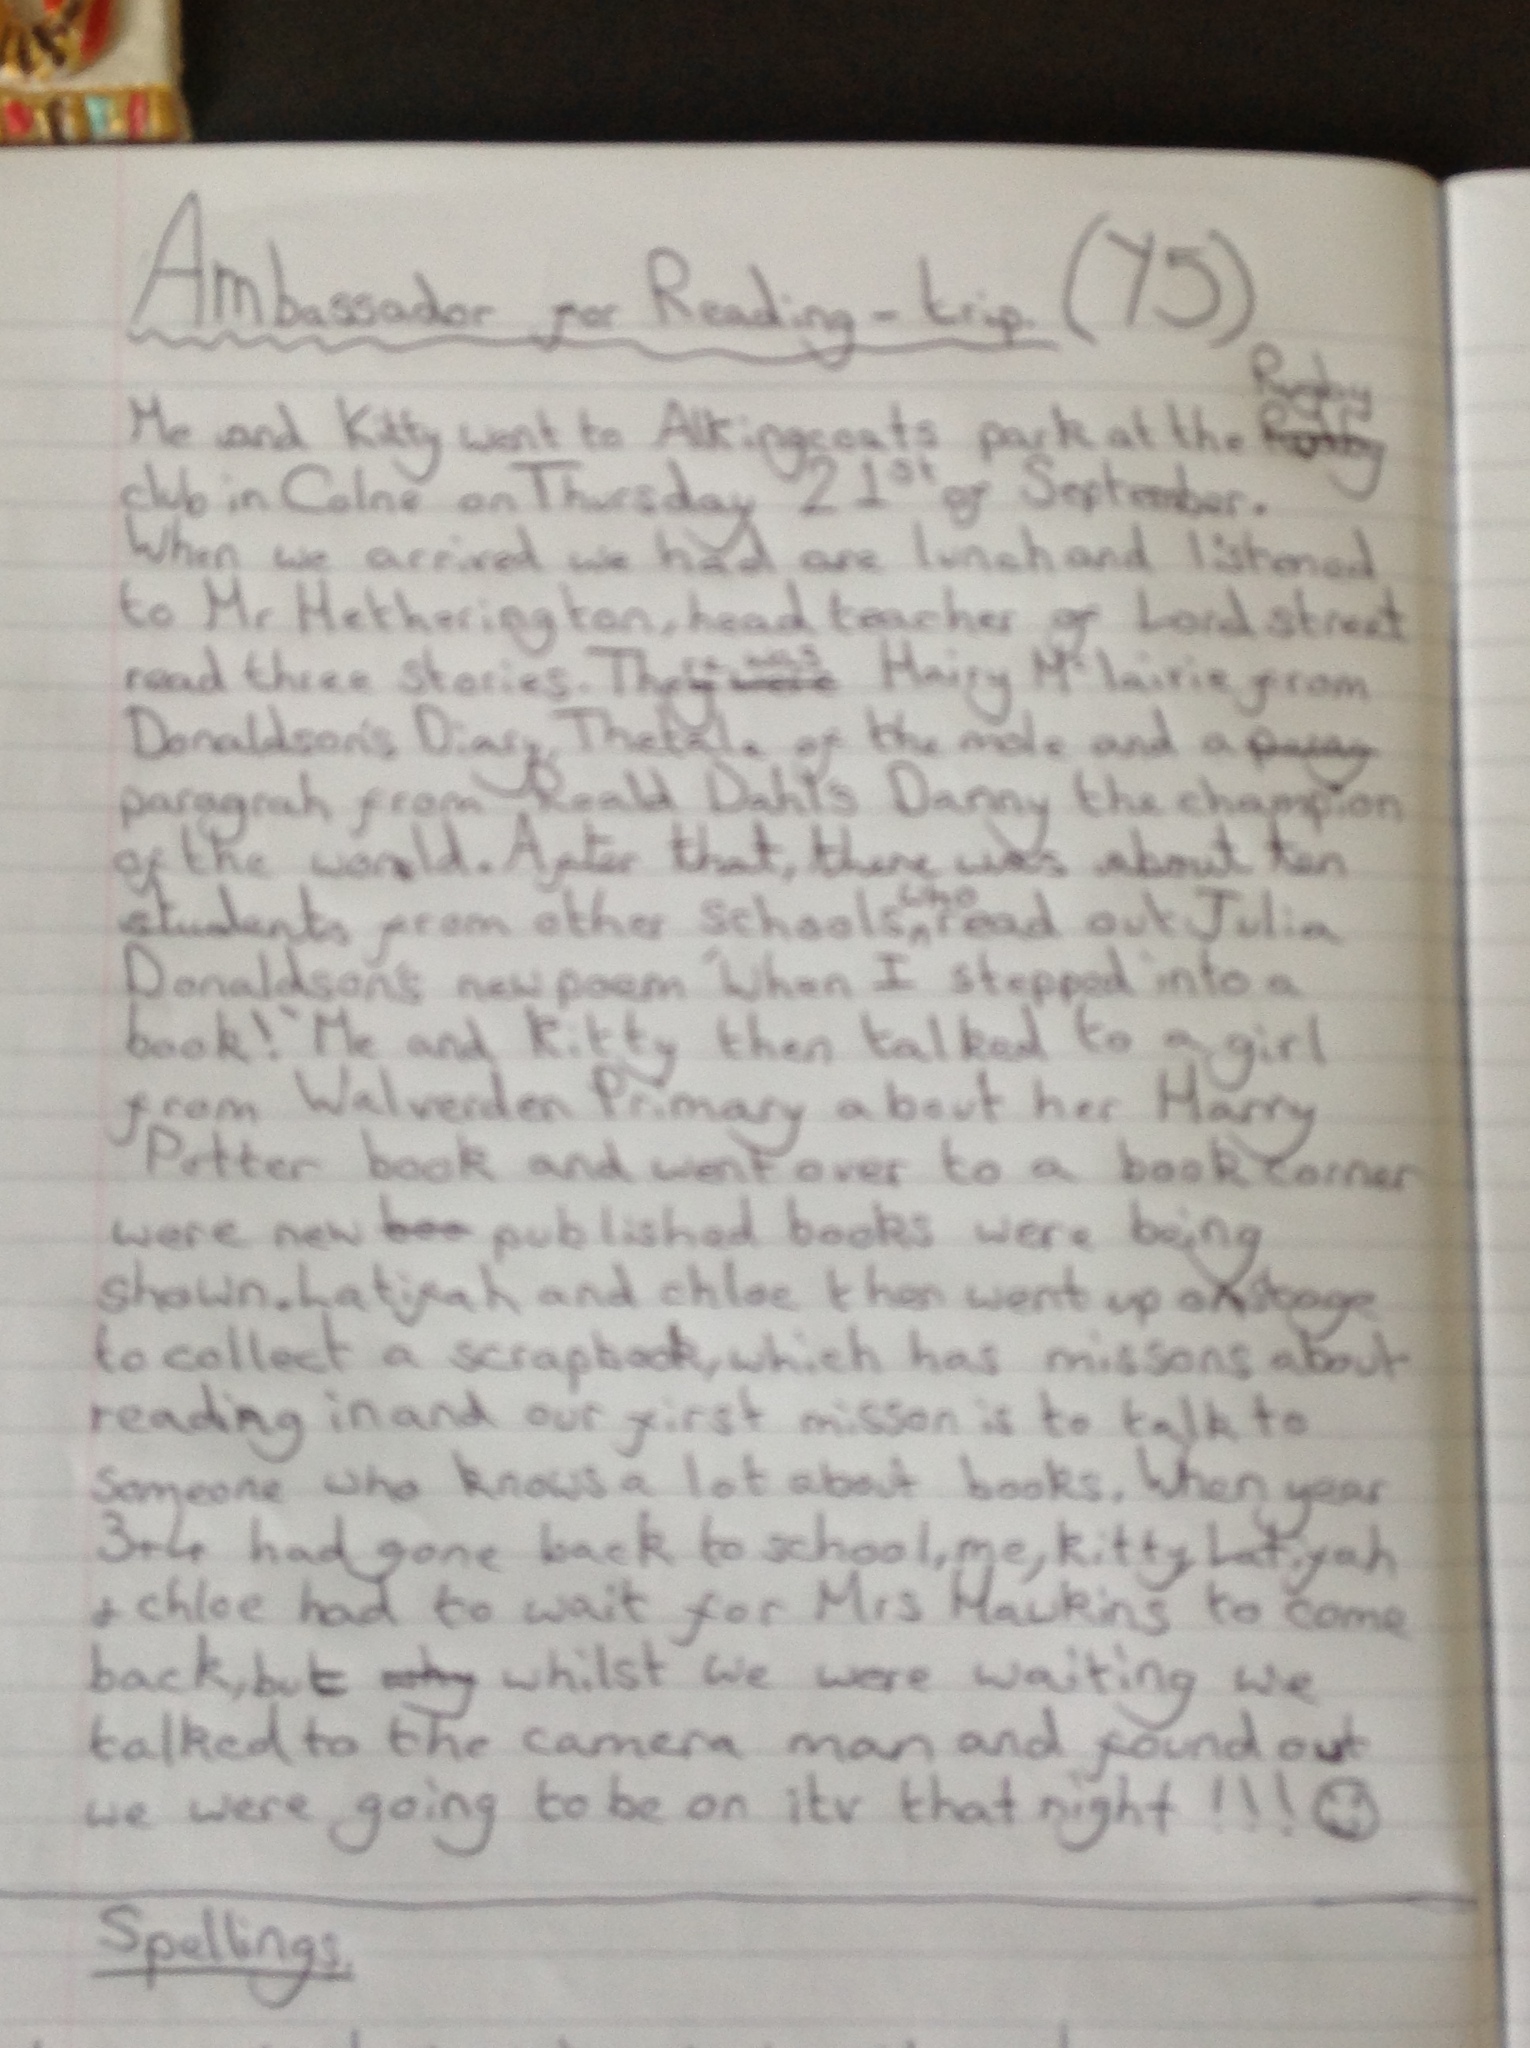 Ambassador for Reading - trip. (Y5)
Rugby
Me and Kitty went to Alkingcoats park at the
club in Colne on Thursday 21st of September.
When we arrived we had are lunch and listened
to Mr Hetherington, head teacher of Lord street
read three stories. There was Hairy Mclairie from
Donaldson's Diary, The tale of the mole and a
paragrah from Roald Dahl's Danny the champion
of the world. After that, there was about ten
students from other schools, who read out Julia
Donaldson's new poem "When I stepped into a
book!" Me and Kitty then talked to a girl
from Walverden Primary about her Harry
Potter book and went over to a book corner
were new published books were being
shown. Latiyah and chloe then went up on stage
to collect a scrapbook, which has missons about
reading in and our first misson is to talk to
someone who knows a lot about books. When year
3+4 had gone back to school, me, kitty, Latiyah
+ chloe had to wait for Mrs Hawkins to come
back, but whilst we were waiting we
talked to the camera man and found out
we were going to be on itv that night !!!
Spellings.